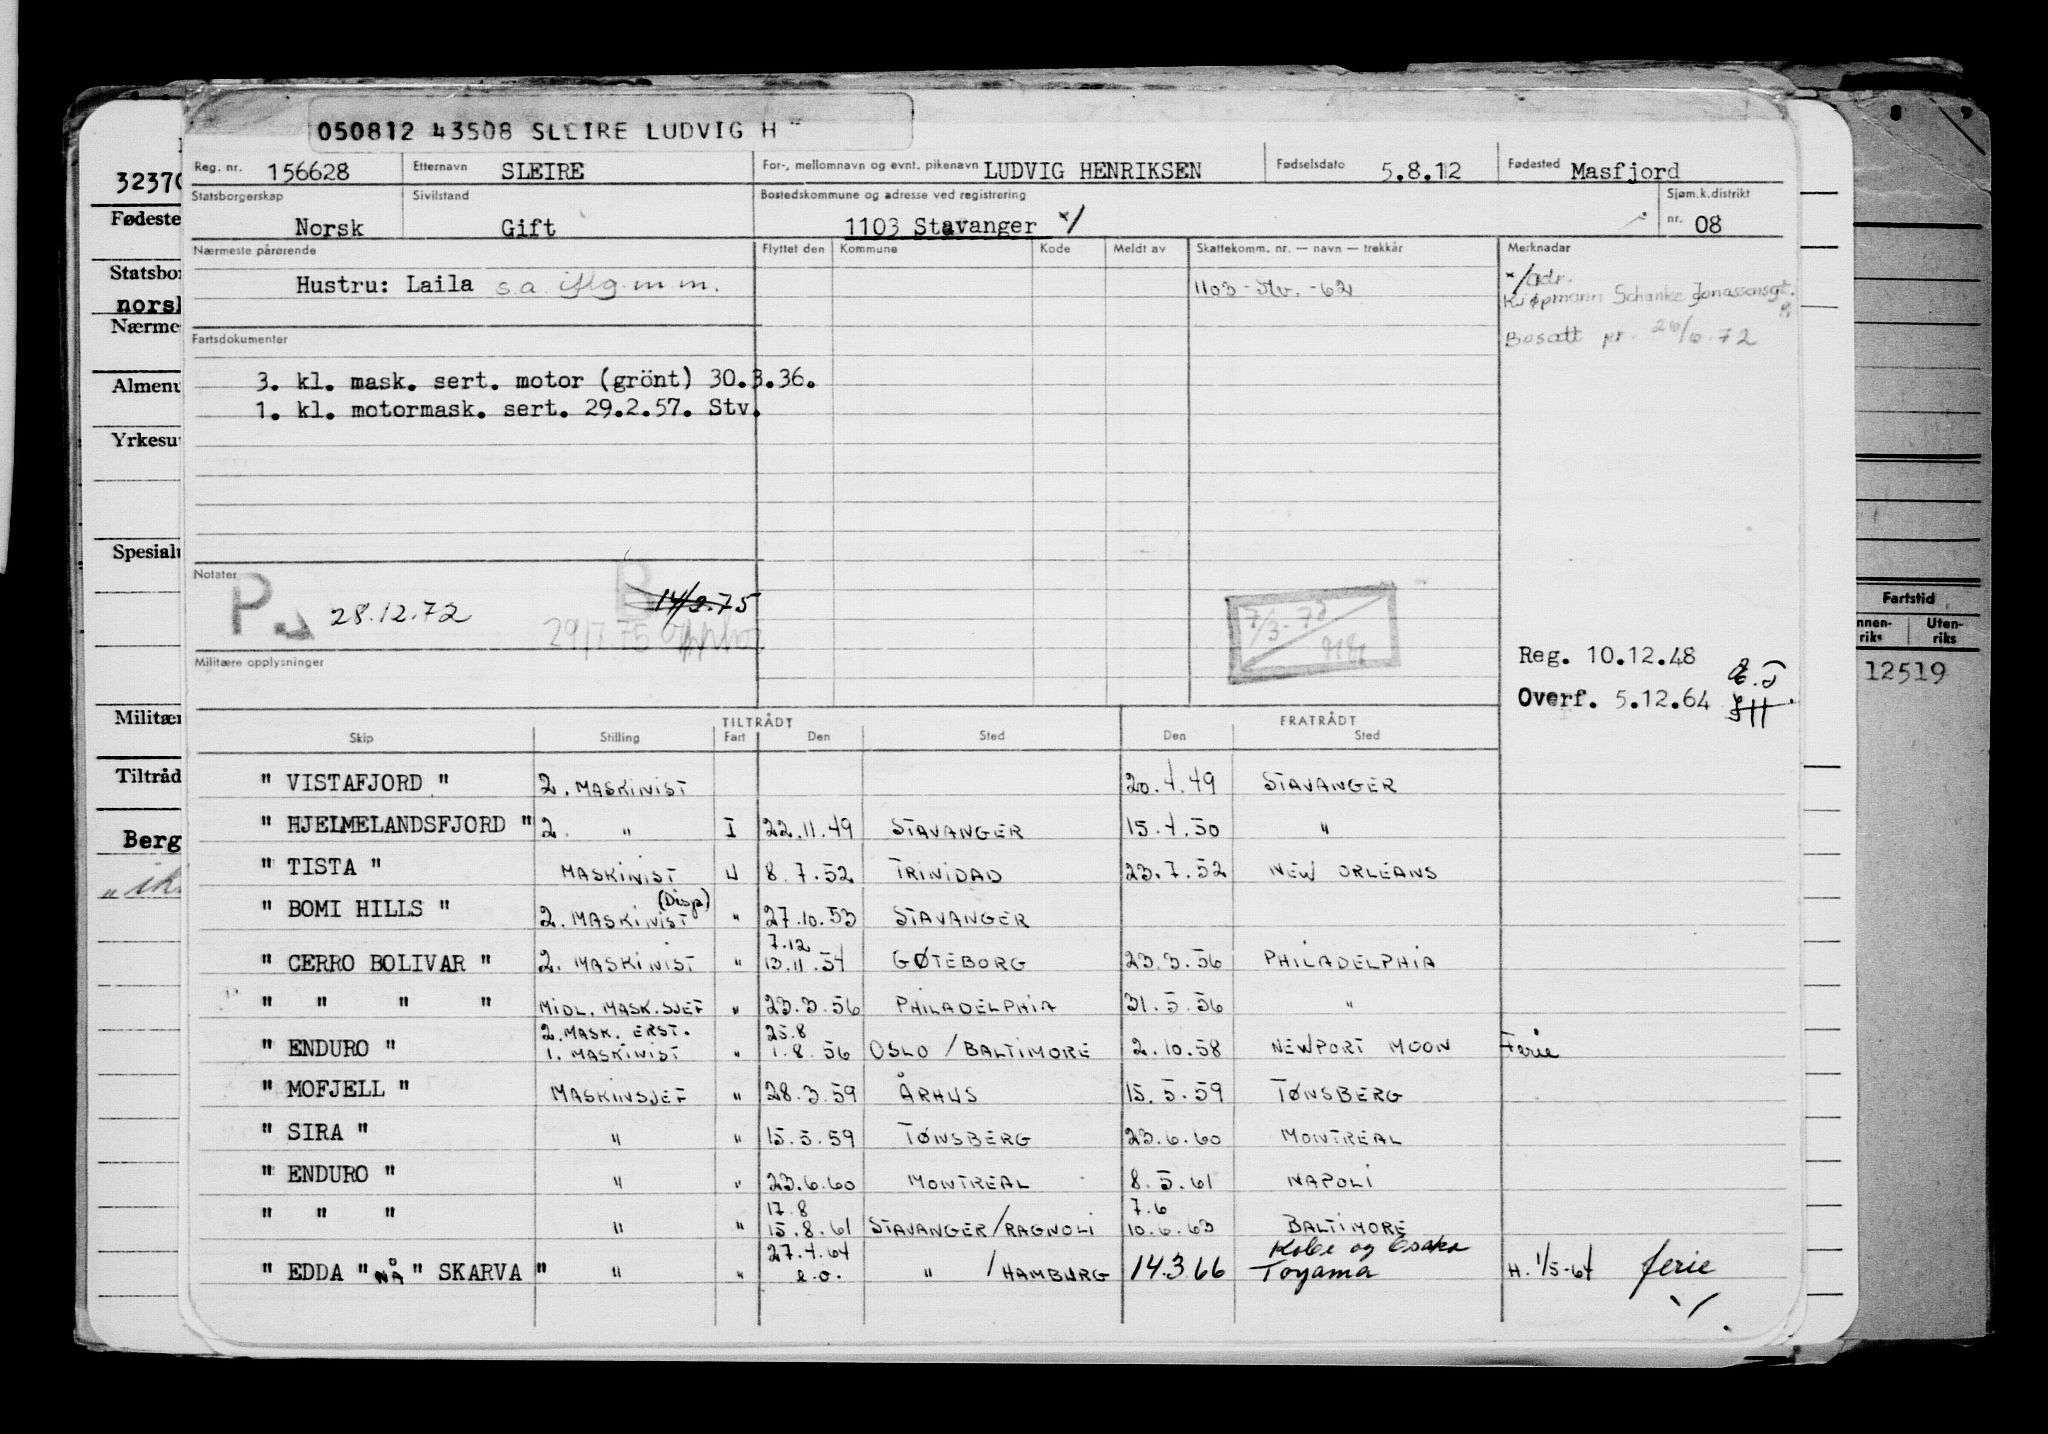 050812 43508 SLEIRE LUDVIG H
Reg. nr. 156628 Etternavn SLEIRE For-, mellomnavn og evnt. pikenavn LUDVIG HENRIKSEN Fødselsdato 5.8.12 Fødested Masfjord
Statsborgerskap Norsk Sivilstand Gift Bostedskommune og adresse ved registrering 1103 Stavanger x/ Sjøm.k.distrikt nr. 08
Nærmeste pårørende Flyttet den Kommune Kode Meldt av Skattekomm. nr. — navn — trekkår Merknadar
Hustru: Laila s.a. iflg. m.m. 1103 - Stv. - 62 x/ adr.
Kjøpmann Schanke Jonassensgt.
Bosatt pr. 26/6.72
Fartsdokumenter
3. kl. mask. sert. motor (grönt) 30.3.36.
1. kl. motormask. sert. 29.2.57. Stv.
Notater
P. 28.12.72 14/2.75
29/7.75
7/3-72
Militære opplysninger
Reg. 10.12.48
Overf. 5.12.64
TILTRÅDT FRATRÅDT
Skip Stilling Fart Den Sted Den Sted
" VISTAFJORD " 2. MASKINIST 20.4.49 STAVANGER
" HJELMELANDSFJORD " 2. " I 22.11.49 STAVANGER 15.4.50 "
" TISTA " MASKINIST U 8.7.52 TRINIDAD 23.7.52 NEW ORLEANS
" BOMI HILLS " 2. MASKINIST (Disp) " 27.10.53 STAVANGER
7.12
" CERRO BOLIVAR " 2. MASKINIST " 13.11.54 GØTEBORG 23.3.56 PHILADELPHIA
" " " " MIDL. MASK.SJEF " 23.3.56 PHILADELPHIA 31.5.56 "
2. MASK. ERST. 25.8
" ENDURO " 1. MASKINIST " 1.8.56 OSLO / BALTIMORE 2.10.58 NEWPORT MOON Ferie
" MOFJELL " MASKINSJEF " 28.3.59 ÅRHUS 15.5.59 TØNSBERG
" SIRA " " " 15.5.59 TØNSBERG 23.6.60 MONTREAL
" ENDURO " " " 23.6.60 MONTREAL 8.5.61 NAPOLI
17.8 7.6
" " " " " 15.8.61 STAVANGER/RAGNOLI 10.6.63 BALTIMORE
27.4.64 Kobe og Osaka
" EDDA " NÅ " SKARVA " " " e.o. " /HAMBURG 14.3 66 Toyama H. 1/5-64 ferie
3237
Fødeste
Statsbor
norsk
Nærme
Almenu
Yrkesu
Spesialu
Militær
Tiltråd
Berg
Fartstid
nnen-riks Uten-riks
12519